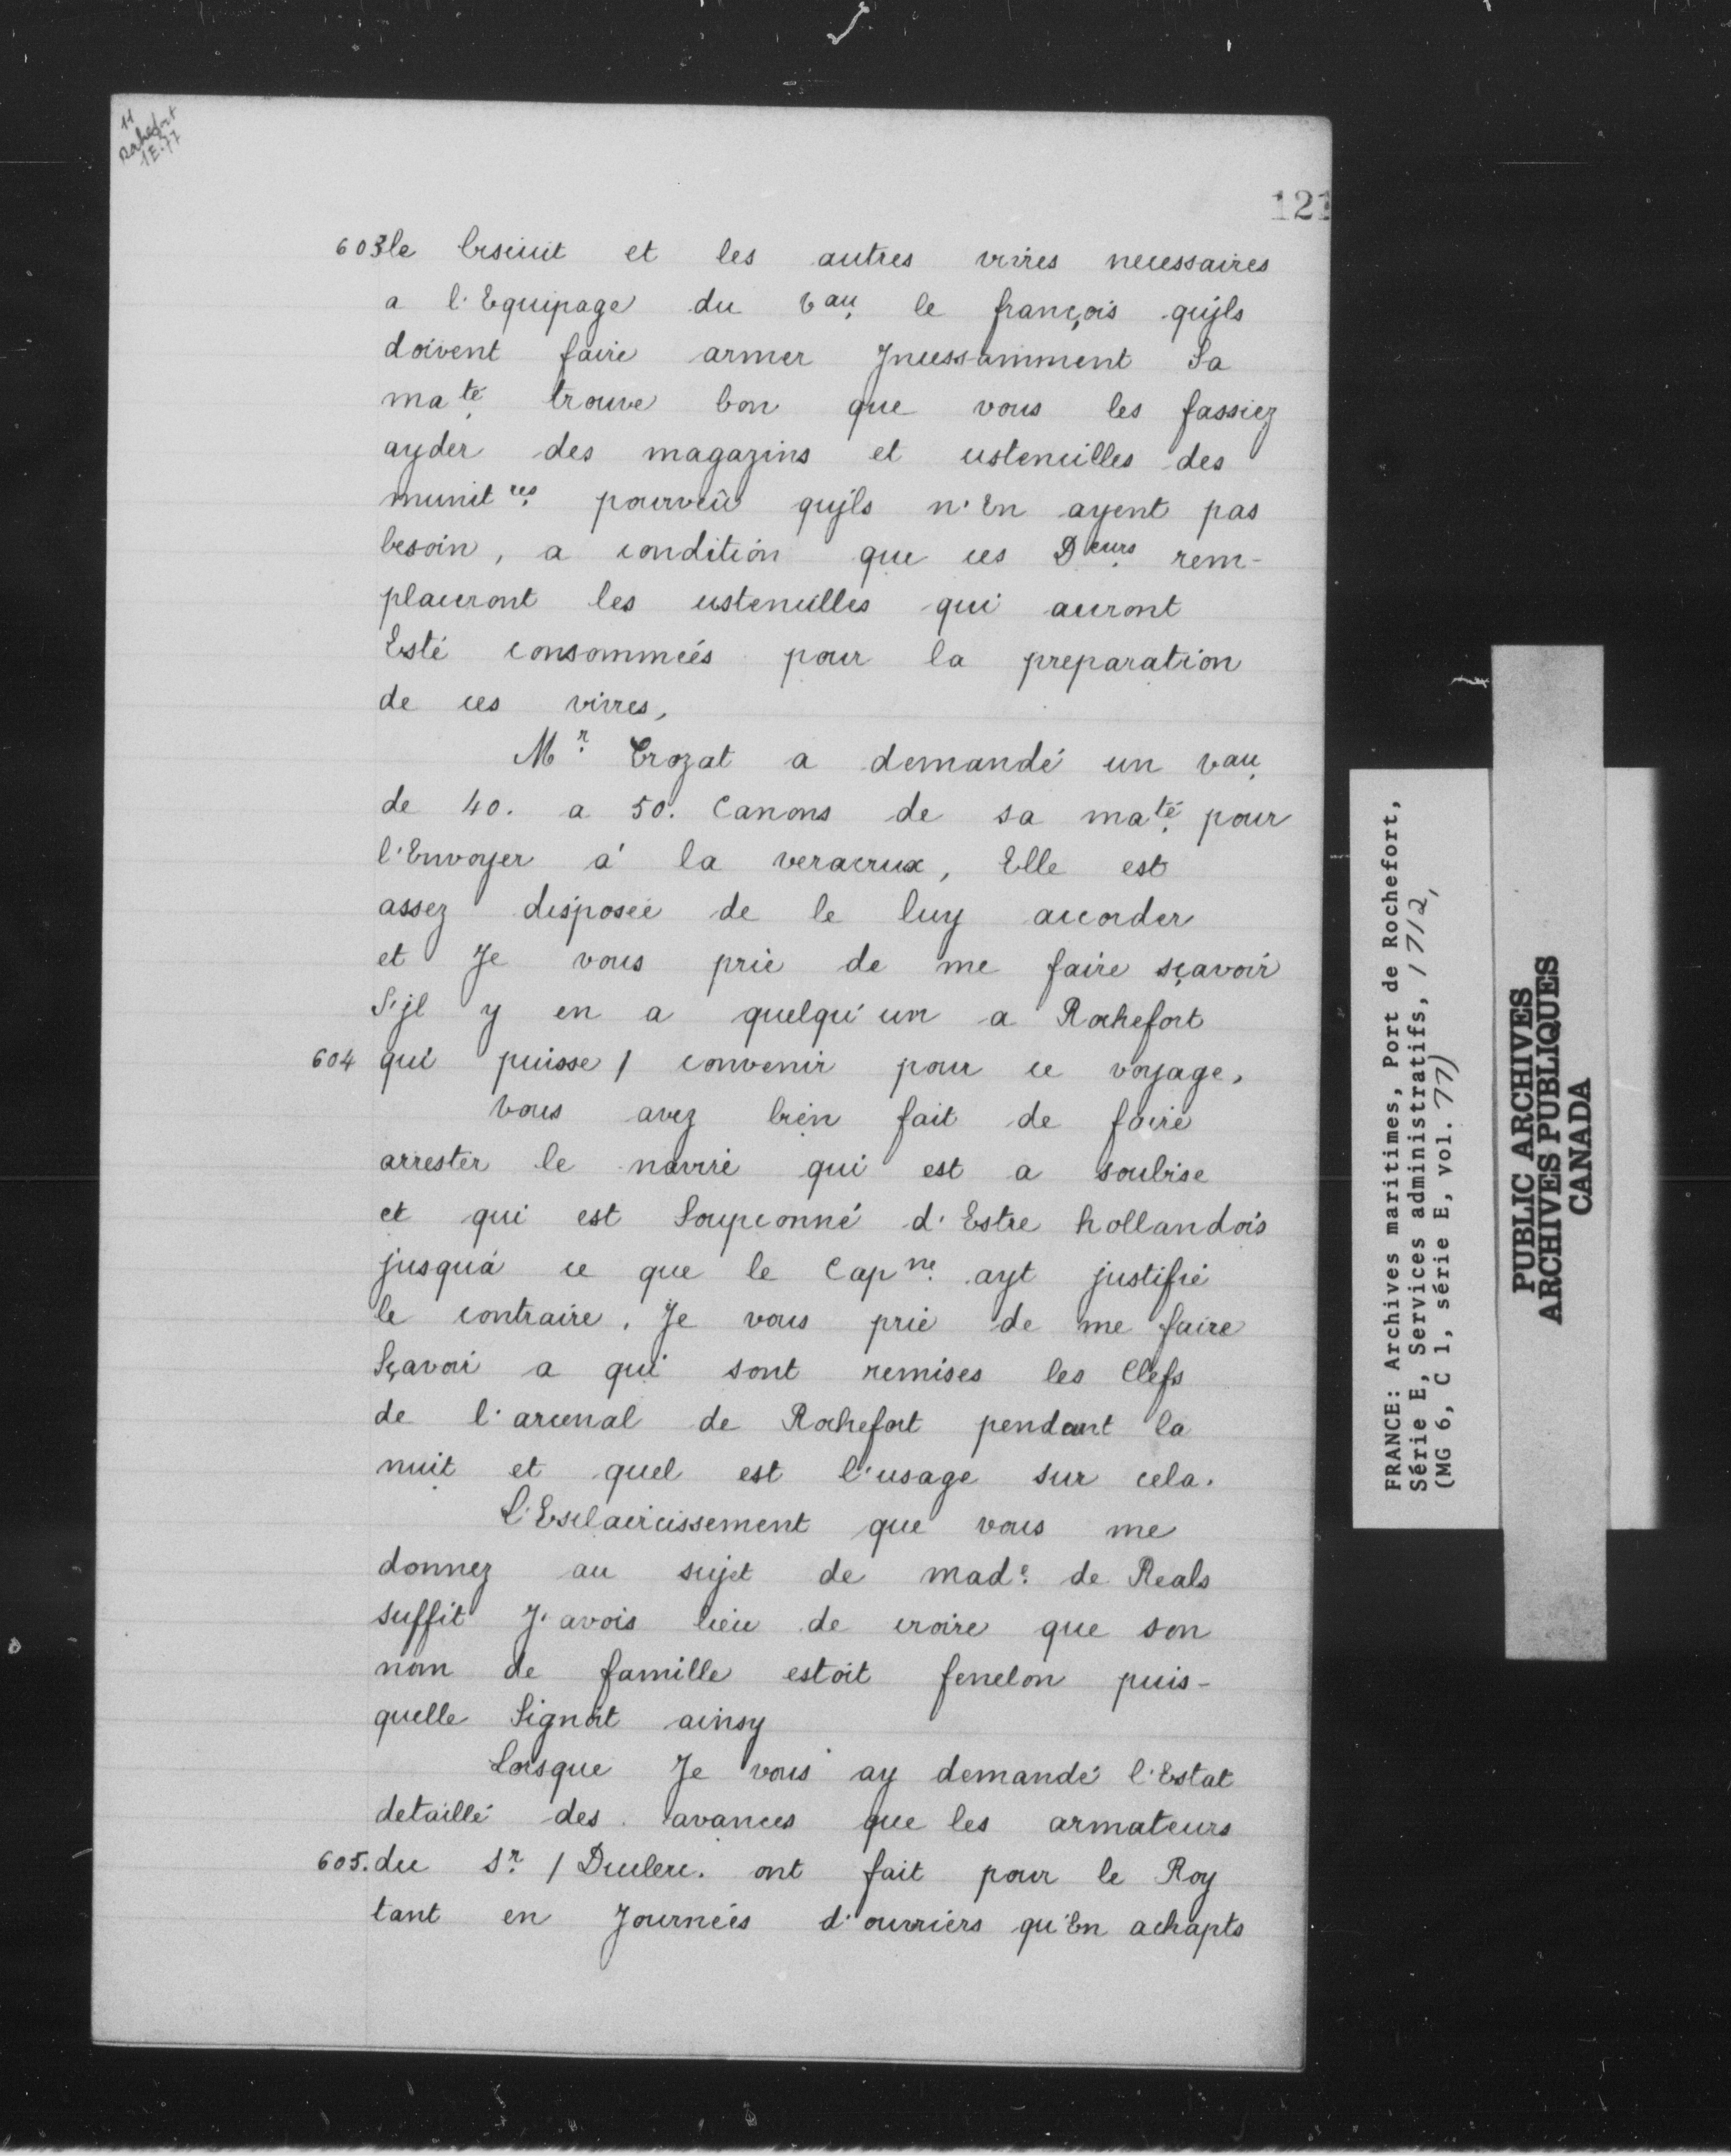 11
Rochefort
1E.77
121
603 le biscuit et les autres vivres necessaires
a l'Equipage du vau le françois qu'jls
doivent faire armer Jncessamment Sa
maté trouve bon que vous les fassiez
ayder des magazins et ustencilles des
munitres pourveû qu'jls n'En ayent pas
besoin, a condition que ces Deurs rem-
placeront les ustencilles qui auront
Esté consommées pour la preparation
de ces vivres,
Mr Crozat a demandé un vau
de 40. a 50. Canons de sa maté pour
l'Envoyer à la veracrux, Elle est
assez disposée de le luy accorder
et Je vous prie de me faire sçavoir
S'jl y en a quelqu'un a Rochefort
604 qui puisse / convenir pour ce voyage,
vous avez bien fait de faire
arrester le navire qui est a soubise
et qui est Soupconné d'Estre hollandois
jusqu'à ce que le Capne ayt justifié
le contraire. Je vous prie de me faire
Sçavoir a qui sont remises les Clefs
de l'arcenal de Rochefort pendant la
nuit et quel est l'usage sur cela.
L'Esclaircissement que vous me
donnez au sujet de made de Reals
suffit J'avois lieu de croire que son
nom de famille estoit fenelon puis-
quelle Signoit ainsy
Lorsque Je vous ay demandé l'Estat
detaillé des avances que les armateurs
605. du Sr / Duclerc. ont fait pour le Roy
tant en Journées d'ouvriers qu'En achapts
FRANCE: Archives maritimes, Port de Rochefort,
Série E, Services administratifs, 1712,
(MG 6, C 1, série E, vol. 77)
PUBLIC ARCHIVES
ARCHIVES PUBLIQUES
CANADA